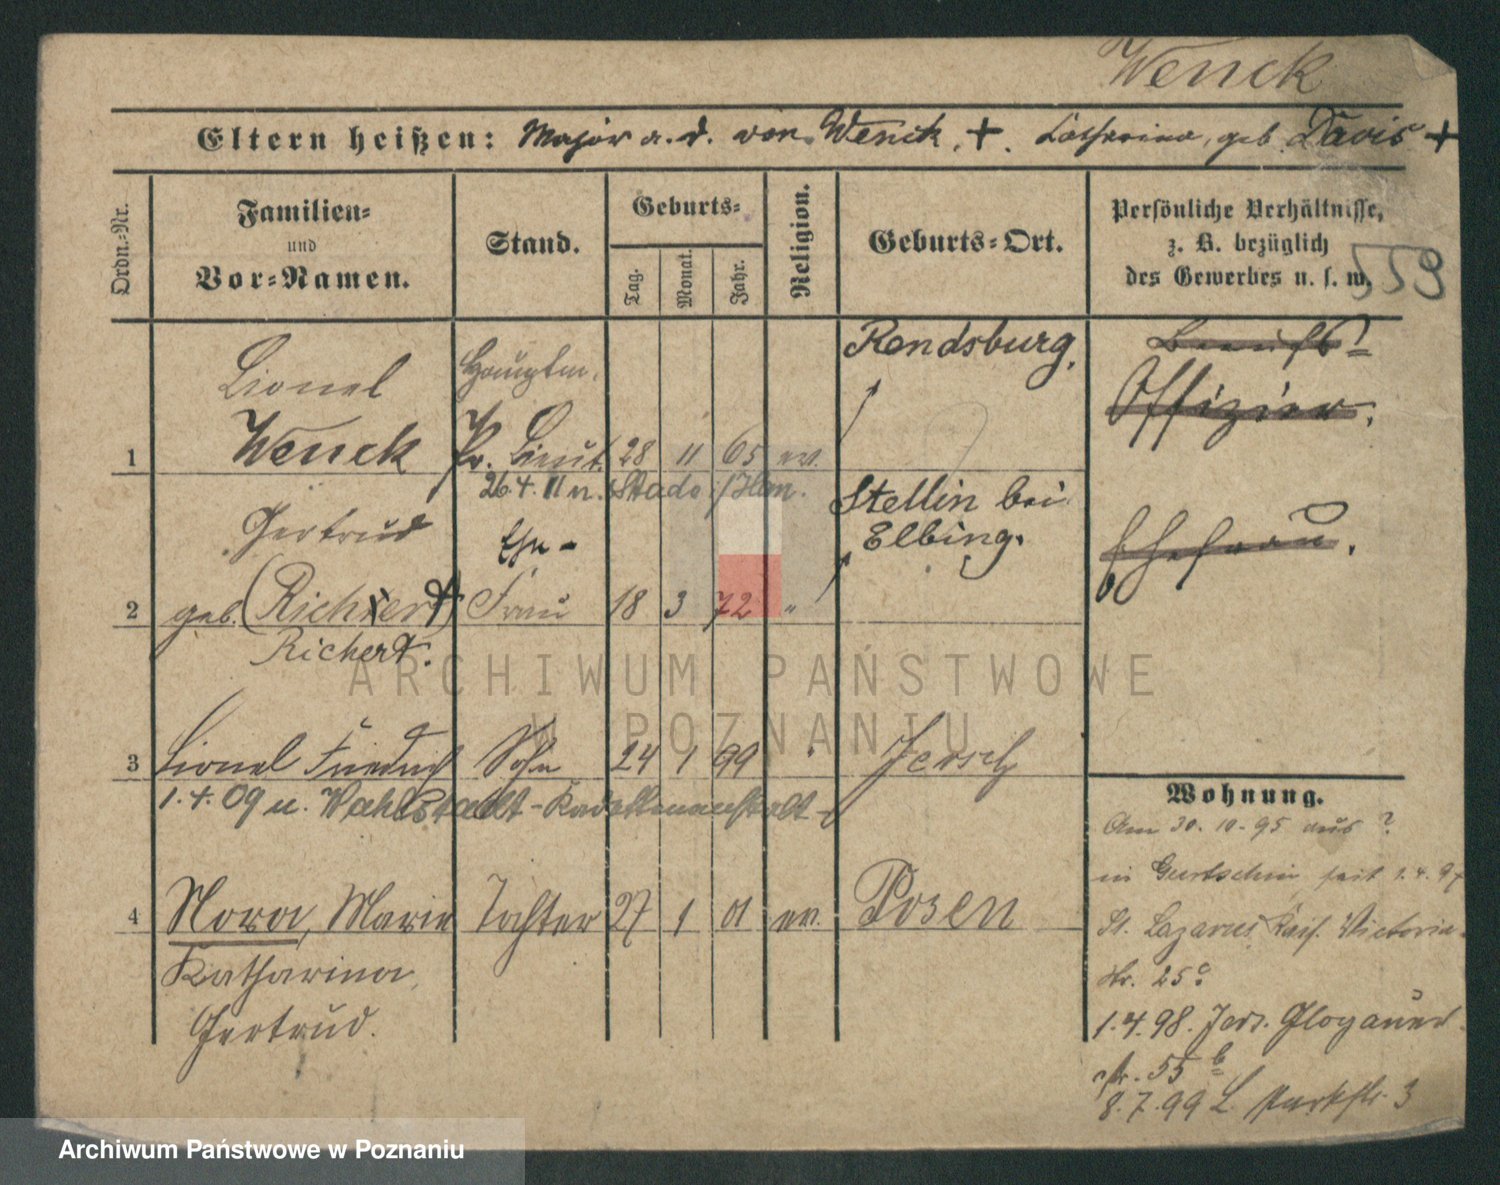 Wenck
Eltern heißen: Major a. D. von Wenck, +. Catharina, geb. Davis +
Ordn.-Nr.
Familien-
und
Vor-Namen.
Stand.
Geburts-
Tag.
Monat.
Jahr.
Religion.
Geburts-Ort.
Persönliche Verhältnisse,
z. B. bezüglich
des Gewerbes u. s. w.
559
1
Lionel
Wenck
Hauptm.
Pr. Lieut. 28 11 65 ev.
Rendsburg.
Berufs?
Offizier.
26.4.11 n. Stade /Han.
2
Gertrud
geb. (Richtert)
Richert.
Ehe-
Frau 18 3 72 "
Stellin bei
Elbing.
Ehefrau.
3 Lionel Friedrich Sohn 24 1 99 " Jersch
1.4.09 n. Wahlstadt-Kadettenanstalt-
4 Nora, Marie Tochter 27 1 01 ev. Posen
Katharina,
Gertrud.
Wohnung.
Am 30.10.95 aus ?
in Gurtschin seit 1.4.97
St. Lazarus Kais. Victoria-
Str. 25c
1.4.98. Jers. Glogauer-
str. 55 b
8.7.99 L. Parkstr. 3
ARCHIWUM PAŃSTWOWE
W POZNANIU
Archiwum Państwowe w Poznaniu